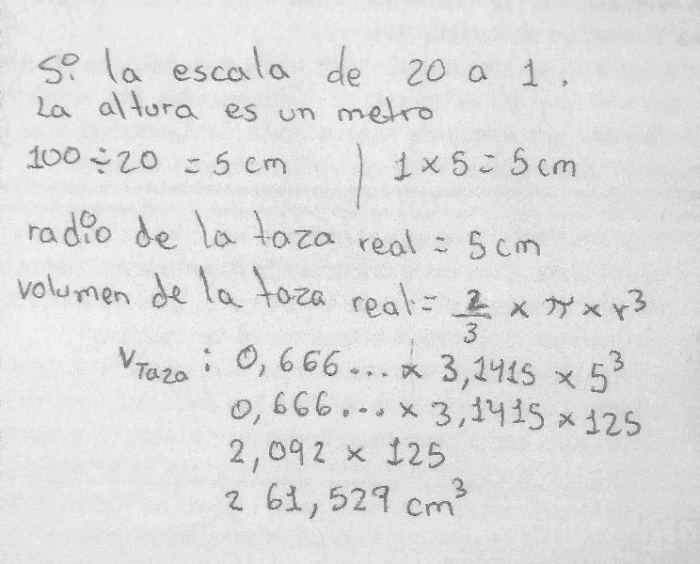 Sº. la escala de 20 a 1.
La altura es un metro
100 ÷ 20 = 5 cm | 1 x 5 = 5 cm
radio de la taza real = 5 cm
volumen de la taza real = 2/3 x π x r³
V Taza : 0,666... x 3,1415 x 5³
0,666... x 3,1415 x 125
2,092 x 125
261,529 cm³